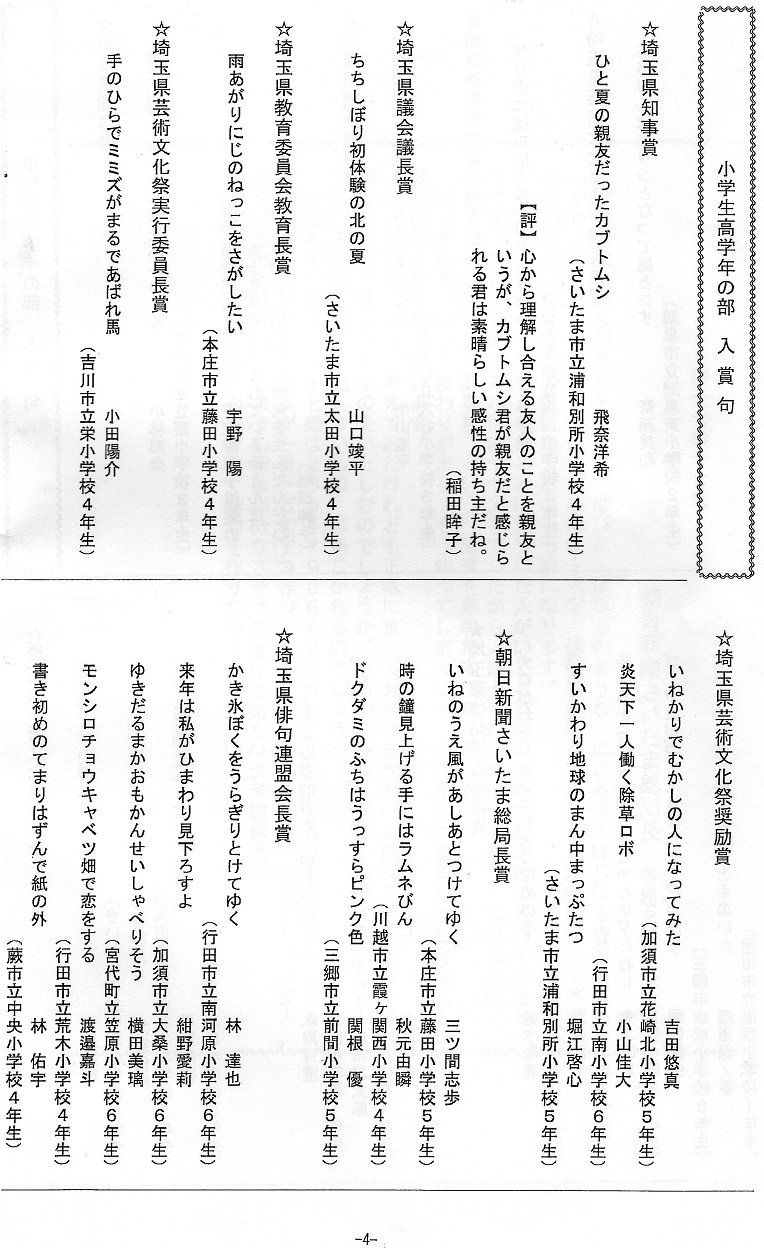 小学生高学年の部　入賞句
☆埼玉県知事賞
ひと夏の親友だったカブトムシ　飛奈洋希
（さいたま市立浦和別所小学校４年生）
【評】心から理解し合える友人のことを親友と
いうが、カブトムシ君が親友だと感じら
れる君は素晴らしい感性の持ち主だね。
（稲田眸子）
☆埼玉県議会議長賞
ちちしぼり初体験の北の夏　山口竣平
（さいたま市立太田小学校４年生）
☆埼玉県教育委員会教育長賞
雨あがりにじのねっこをさがしたい　宇野　陽
（本庄市立藤田小学校４年生）
☆埼玉県芸術文化祭実行委員長賞
手のひらでミミズがまるであばれ馬　小田陽介
（吉川市立栄小学校４年生）
☆埼玉県芸術文化祭奨励賞
いねかりでむかしの人になってみた　吉田悠真
（加須市立花崎北小学校５年生）
炎天下一人働く除草ロボ　小山佳大
（行田市立南小学校６年生）
すいかわり地球のまん中まっぷたつ　堀江啓心
（さいたま市立浦和別所小学校５年生）
☆朝日新聞さいたま総局長賞
いねのうえ風があしあとつけてゆく　三ツ間志歩
（本庄市立藤田小学校５年生）
時の鐘見上げる手にはラムネびん　秋元由瞬
（川越市立霞ヶ関西小学校４年生）
ドクダミのふちはうっすらピンク色　関根　優
（三郷市立前間小学校５年生）
☆埼玉県俳句連盟会長賞
かき氷ぼくをうらぎりとけてゆく　林　達也
（行田市立南河原小学校６年生）
来年は私がひまわり見下ろすよ　紺野愛莉
（加須市立大桑小学校６年生）
ゆきだるまかおもかんせいしゃべりそう　横田美璃
（宮代町立笠原小学校６年生）
モンシロチョウキャベツ畑で恋をする　渡邉嘉斗
（行田市立荒木小学校４年生）
書き初めのてまりはずんで紙の外　林　佑宇
（蕨市立中央小学校４年生）
-4-